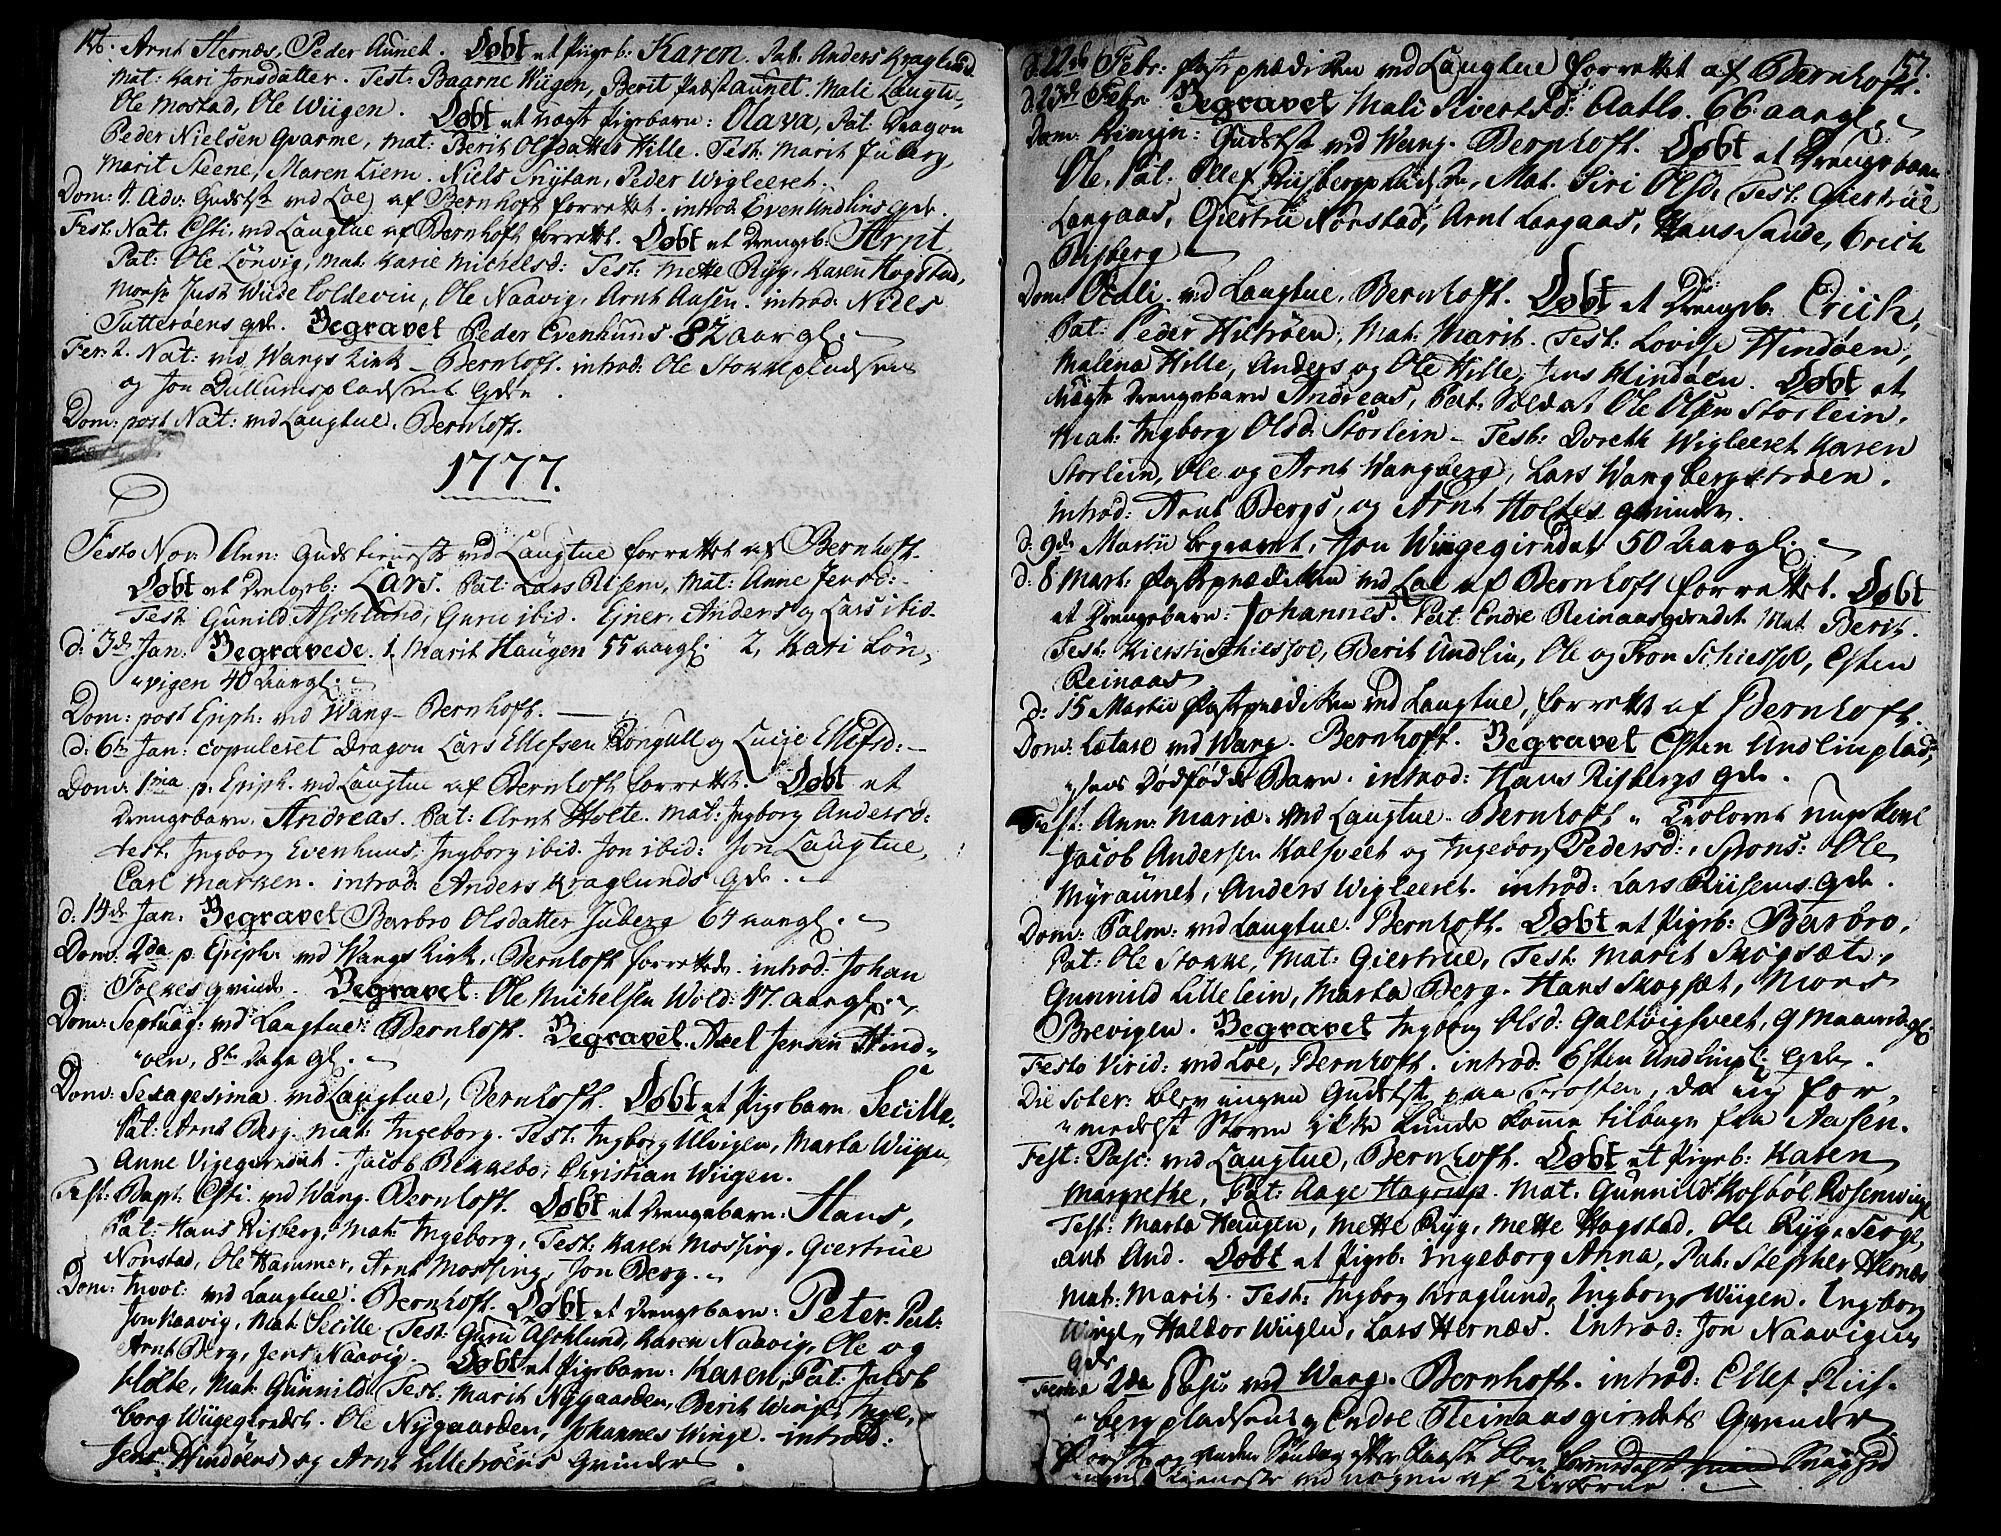 156. Arnt Hernæs, Peder Aunet. Døbt et Pigeb: Karen. Pat: Anders Kraglund.
Mat: Kari Jonsdatter. Test: Baarne Wiigen, Berit Præstaunet. Mali Laugtu,
Ole Mostad, Ole Wiigen. Døbt et uægt Pigebarn: Olava, Pat: Dragon
Peder Nielsen Qvarme, Mat: Berit Olsdatter Hille. Test: Marit Juberg,
Marit Steene, Maren Liem. Niels Snytan, Peder Wigleeret.
Dom: 4. Adv: Gudstst ved Loe af Bernhoft forrettet. introd Even Undlins Qde.
Fest: Nat: Csti: ved Laugtue af Bernhoft forrettet. Døbt et Drengeb: Arnt,
Pat: Ole Lönvig, Mat: Karie Michelsd: Test: Mette Ryg, Karen Hogstad,
Monsr Just Wilde Coldevin, Ole Naavig, Arnt Aasen. introd: Niels
Tutterøens Qde. Begravet Peder Evenhuus 82 aar gl:
Fer: 2. Nat: ved Wangs Kirk Bernhoft. introd: Ole Stokkepladsen
og Jon Dullumspladsens Qder.
Dom: post Nat: ved Laugtue. Bernhoft.
1777.
Festo Nov: Ann: Gudstieneste ved Laugtue forrettet af Bernhoft.
Døbt et Drengb: Lars. Pat: Lars Risem, Mat: Anne Jensd:
Test: Gunild Aschlund, Guru ibid. Ejner, Anders og Lars ibid.
d: 3de Jan: Begravede. 1, Marit Haugen 55 aar gl: 2, Kari Løn,
vigen 40 Aar gl:
Dom: post Epiph: ved Wang Bernhoft.
d: 6te Jan: copuleret Dragon Lars Ellefsen Kongull og Lucie Ellefsd:
Dom: 1ma p. Epiph. ved Laugtue af Bernhoft forrettet. Døbt et
Drengebarn. Andreas. Pat: Arnt Holte. Mat: Ingborg Andersd:
test: Ingborg Evenhuus, Ingborg ibid. Jon ibid: Jon Laugtue,
Carl Marken. introd: Anders Kraglunds Qde.
d: 14de Jan: Begravet Barbro Olsdatter Juberg 64 aar gl.
Dom: 2da p. Epiph. ved Wangs Kirk. Bernhoft forrettede. introd: Johan
Folkes qvinde. Begravet. Ole Michelsen Wold: 47. aar gl.
Dom: Septuag: ved Laugtue: Bernhoft. Begravet. Axel Jensen Hind
øen, 8te Dage gl.
Dom: Sexagesima ved Laugtue, Bernhoft. Døbt et Pigebarn Secille.
Pat: Arnt Berg. Mat: Ingeborg. Test: Ingborg Ulvigen, Marta Wiigen,
Anne Vigegrendet. Jacob Bekkebo, Christian Wiigen.
Fest: Bapt: Csti: ved Wang. Bernhoft. Døbt et Drengebarn: Hans,
Pat: Hans Risberg, Mat: Ingeborg, Test: Karen Mossing, Giertrue
Norstad, Ole Hammer, Arnt Mossing, Jon Berg.
Dom: Invoc: ved Laugtue: Bernhoft. Døbt et Drengebarn: Peter. Pat:
Jon Naavig, Mat: Secille Test: Guru Aschlund, Karen Naavig, Ole og
Arnt Berg, Jens Naavig. Døbt et Pigebarn: Karen, Pat: Jacob
Holte, Mat: Gunnild Test: Marit Nygaarden, Berit Winge, Inge,
borg Wiigegrendet. Ole Nygaarden, Johannes Winge. introd:
Jens Hindøens og Arnt Lilletroens Qvinder.
157.
d. 22de Febr: Fasteprædiken ved Laugtue forrettet af Bernhoft.
d. 23de Febr: Begravet Mali Sivertsd: Aatlo. 66: aar gl.
Dom: Reminn: Gudstst ved Wang. Bernhoft. Døbt et Drengebarn
Ole. Pat: Ellef Riisbergpladsen, Mat: Siri Olsd: Test: Giertrue
Langaas, Giertru Norstad, Arnt Langaas, Hans Sande, Erich
Risberg
Dom: Oculi. ved Laugtue, Bernhoft. Døbt et Drengeb: Erich,
Pat: Peder Hitrøen, Mat: Marit. Test: Lovise Hindøen,
Malena Hille, Anders og Ole Hille, Jens Hindøen. Døbt et
uægte Drengebarn Andreas, Pat: Soldat Ole Olsen Storlein,
Mat: Ingborg Olsd: Storlein Test: Doreth Wigleeret Karen
Storlein, Ole og Arnt Wangberg, Lars Wangbergstrøen.
introd: Arnt Bergs, og Arnt Holtes qvinder.
d: 9de Martii begravet, Jon Wiigegrendet 50 Aar gl:
d: 8 Mart: Fasteprædiken ved Loe af Bernhoft forrettet. Døbt
et Drengebarn: Johannes. Pat: Endre Reinaasgrendet Mat: Berit.
Test: Kiersti Schiesfoe, Berit Undlin, Ole og Tron Schiesfoe, Esten
Reinaas
d: 15 Martii Fasteprædiken ved Laugtue, forrettet af Bernhoft.
Dom: Lætare ved Wang. Bernhoft. Begravet Esten Undlinplad,
sens Dødfødde Barn. introd: Hans Risbergs Qde.
Fest: Ann: Mariæ. ved Laugtue. Bernhoft Trolovet ungekarl
Jacob Andersen Kalfveet og Ingeborg Pedersd:, Spons: Ole
Myraunet, Anders Wigleeret. introd: Lars Riisems Qde.
Dom: Palm: ved Laugtue. Bernhoft. Døbt et Pigeb: Barbro,
Pat: Ole Stokke, Mat: Giertrue, Test: Marit Skogsæt,
Gunnild Lillelein, Marta Berg. Hans Skogsæt, Mons
Brevigen. Begravet Ingborg Olsd: Galtvigtveet, 9 Maaneder gl:
Festo Virid: ved Loe, Bernhoft. introd: Esten Undlinpl: Qde.
Die Soter: blev ingen Gudstst paa Frosten, da jeg for,
medelst Storm ikke kunde komme tilbage fra Aasen.
Fest: Pasc: ved Laugtue, Bernhoft. Døbt et Pigeb: Karen
Margrethe, Pat: Aage Hagerup. Mat: Gunnild Kosbøl Rosenvinge
Test: Marta Haugen, Mette Ryg, Mette Hogstad. Ole Ryg, Serge,
ant And. Døbt et Pigeb: Ingeborg Anna, Pat: Stephen Hernæs
Mat: Marit. Test: Ingborg Kraglund, Ingborg Wiigen. Ingborg
Winge, Haldor Wiigen, Lars Hernæs. introd: Jon Naavigens
Qde.
Feriæ 2da Pasc: ved Wang. Bernhoft. introd: Ellef Riis,
bergpladsens og Endre Reinaasgrendets Qvinder
Første og anden Søndag efter Paaske blev
ingen Tieneste ved nogen af Kirkerne.